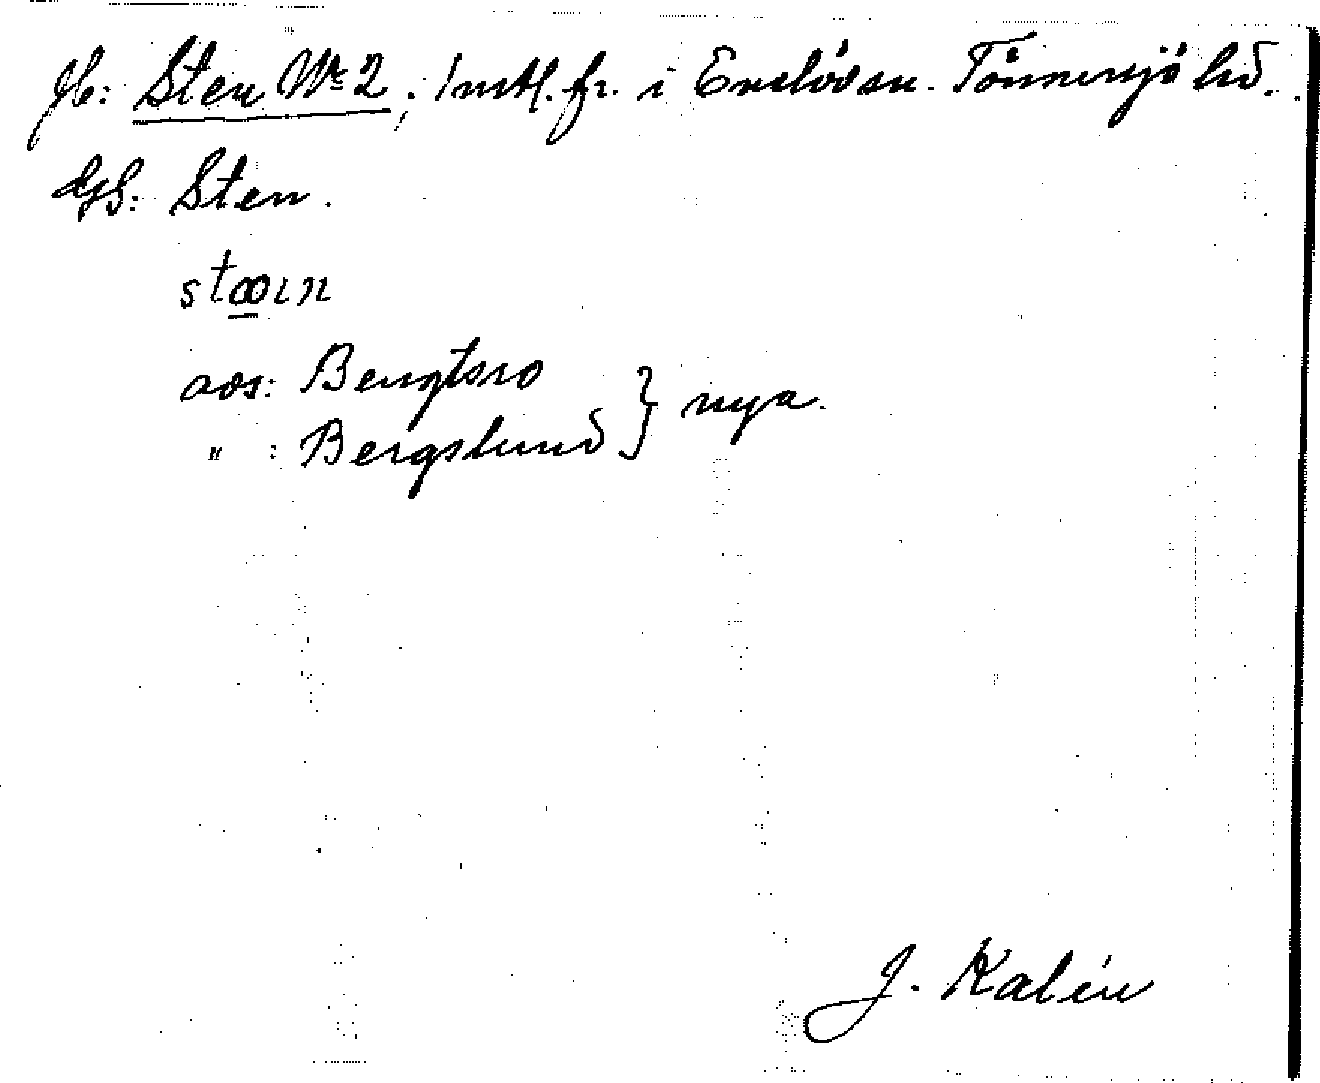 Jb: Sten No 2, 1 mtl. fr. i Enslövsn. Tönnersjö hd.
GS: Sten.
stœın
avs: Bengtsro
" : Bergslund } nya.
J. Kalén